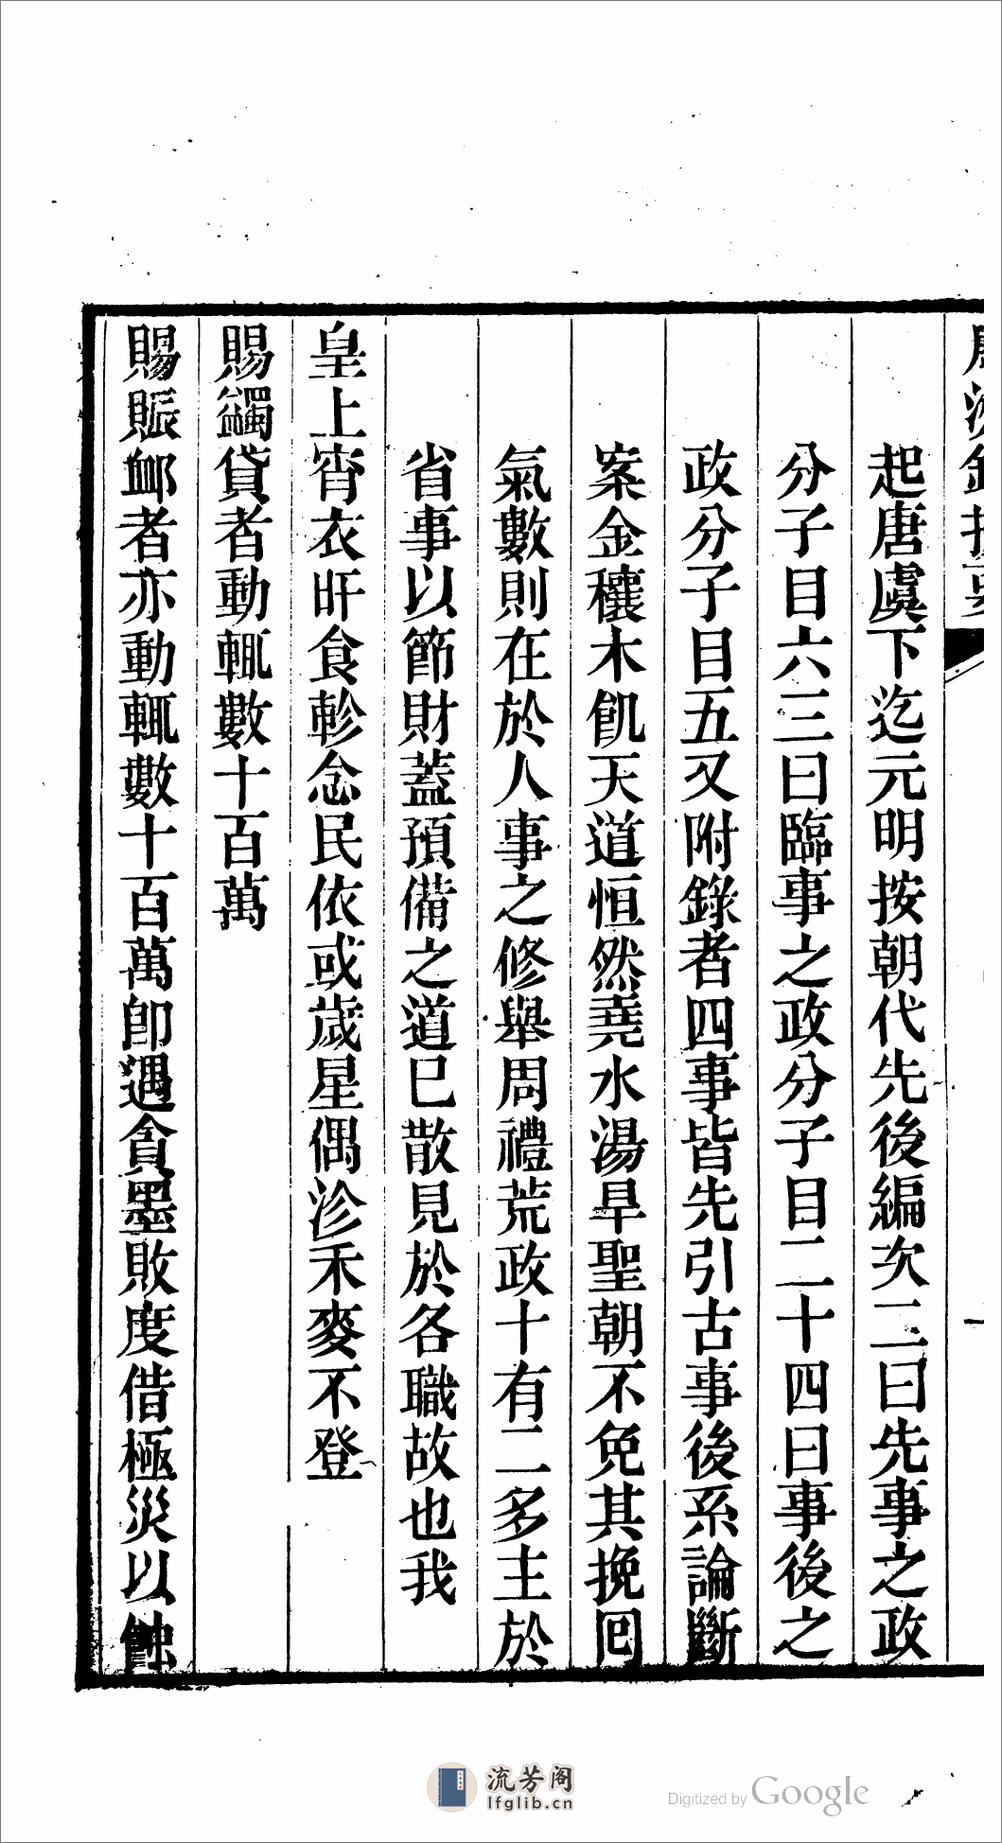 起唐虞下迄元明按朝代先後編次二曰先事之政
分子目六三曰臨事之政分子目二十四曰事後之
政分子目五又附錄者四事皆先引古事後系論斷
案金穰木飢天道恒然堯水湯旱聖朝不免其挽囘
氣數則在於人事之修舉周禮荒政十有二多主於
省事以節財蓋預備之道已散見於各職故也我
皇上宵衣旰食軫念民依或歲星偶沴禾麥不登
賜蠲貸者動輒數十百萬
賜賑卹者亦動輒數十百萬卽遇貪墨敗度借極災以蝕
流芳阁
lfglib.cn
Digitized by Google